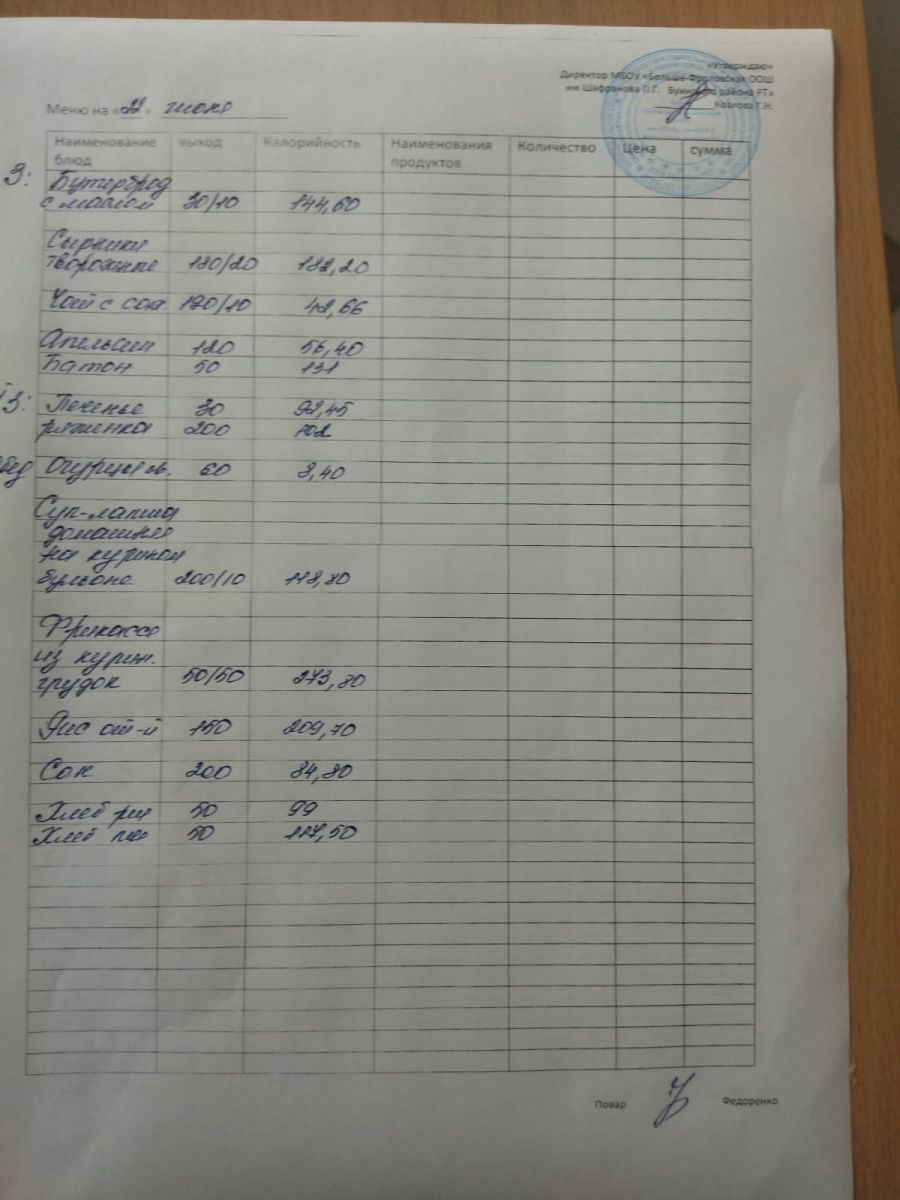 «Утверждаю»
Директор МБОУ «Больше-Фроловская ООШ
им Шафранова О.Г. Буинского района РТ»
Козлова Г.Н.
Меню на «22» июня
Наименование блюд выход Калорийность Наименования продуктов Количество Цена сумма
З: Бутерброд
с маслом 30/10 144,60
Сырники
творожные 180/20 182,20
Чай с сах. 190/10 42,66
Апельсин 120 56,40
Батон 50 131
Печенье 30 92,45
ряженка 200 102
Обед Огурцы св. 60 8,40
Суп-лапша
домашняя
на курином
бульоне 200/10 118,80
Фрикассе
из курин.
грудок 50/50 273,80
Рис от-й 150 209,70
Сок 200 84,80
Хлеб рж 50 99
Хлеб пш 50 117,50
Повар Федоренко